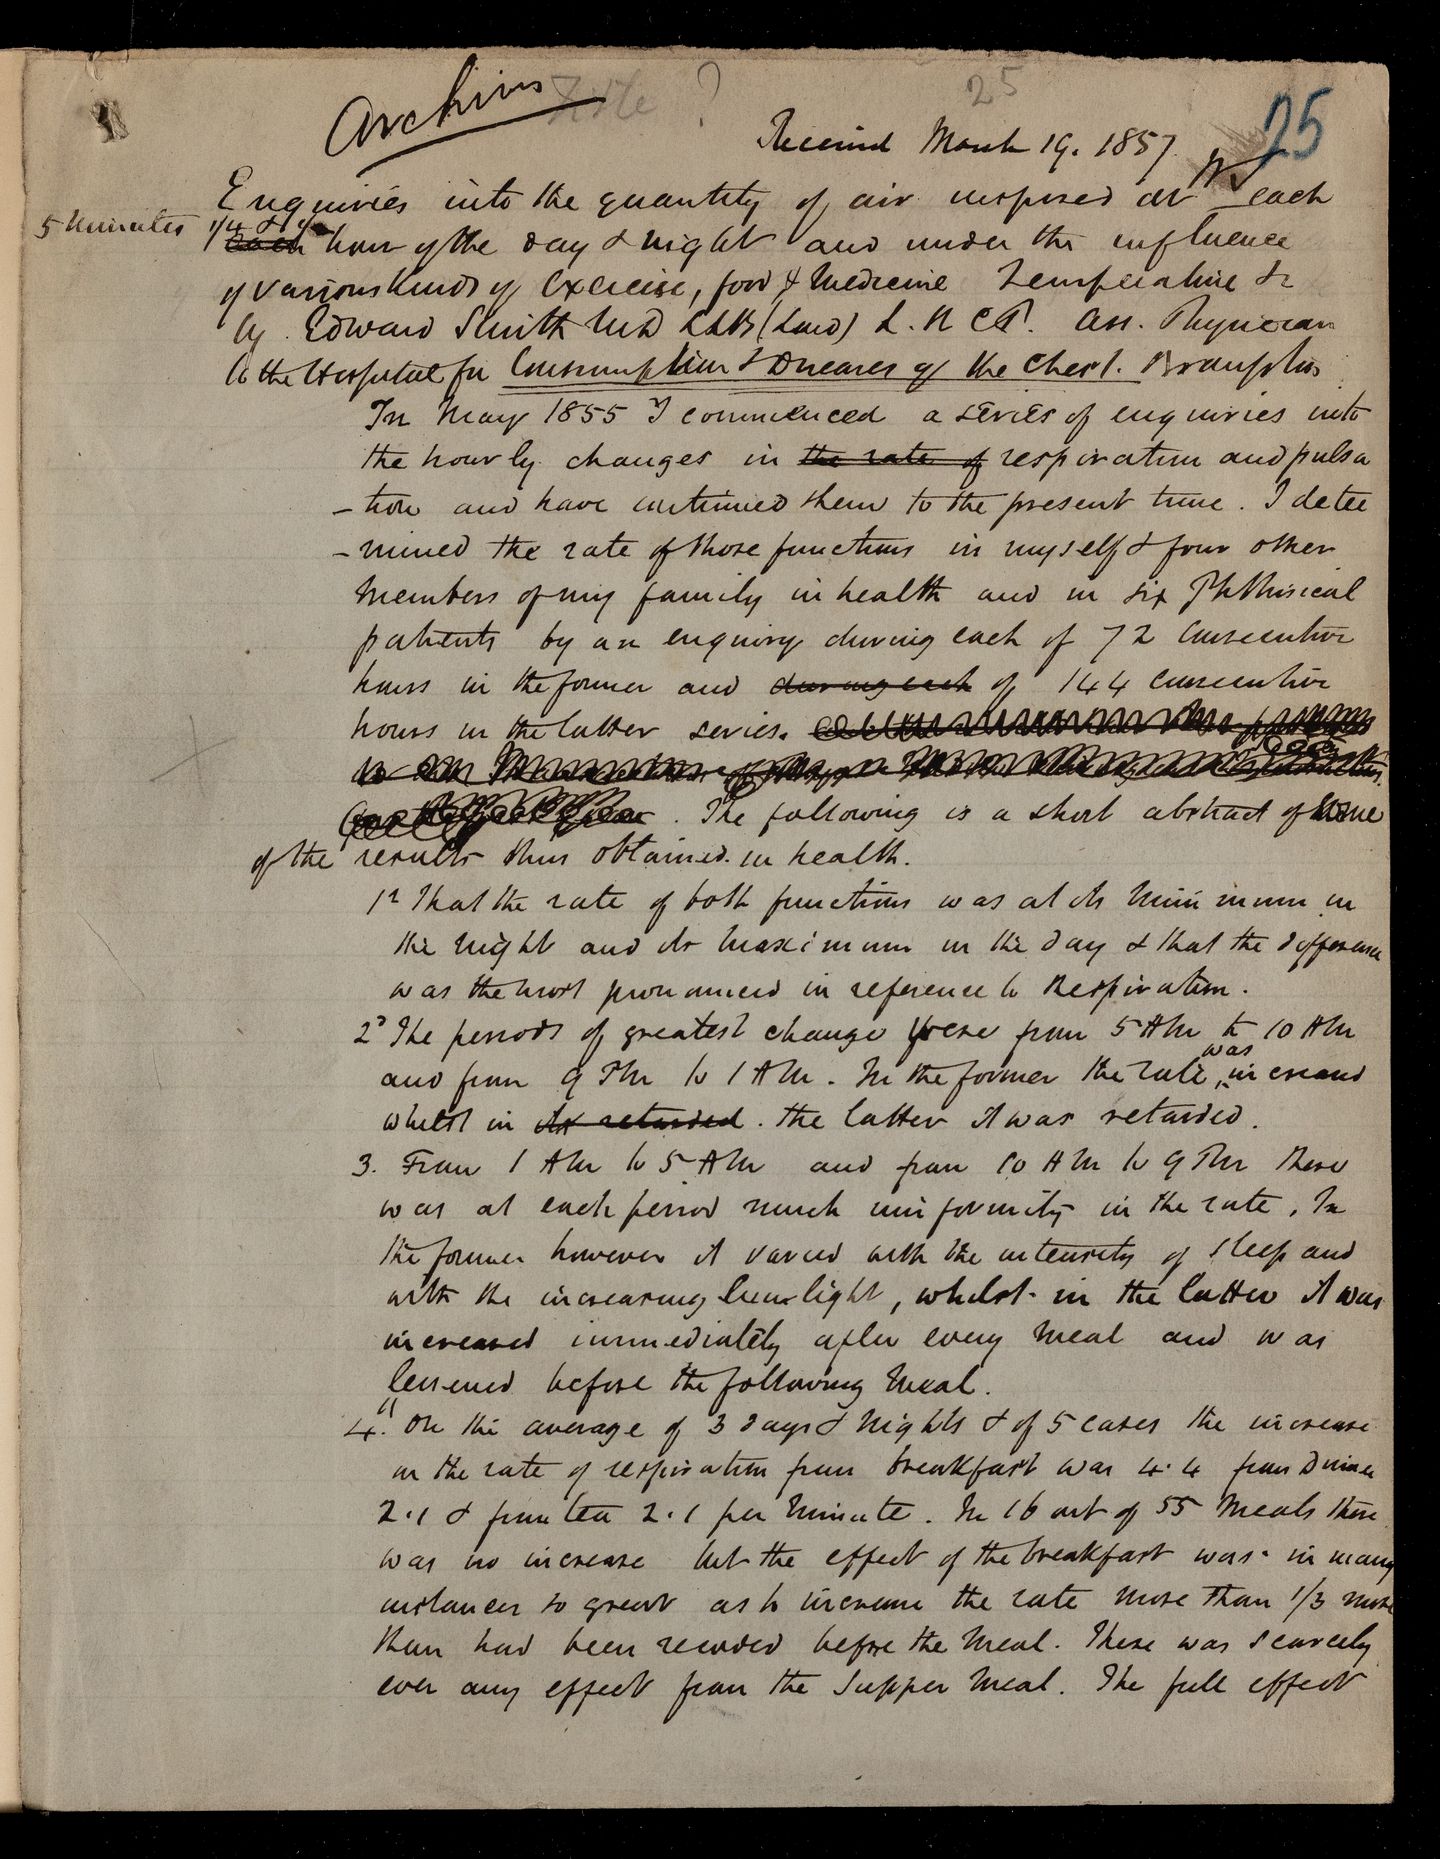 Archives Title ? 25
Received March 19. 1857. 25
Enquiries into the quantity of air inspired at each
5 minutes 1/4 & 1/2 each hour of the day & night and under the influence
of various kinds of Exercise, food & Medicine Temperature &c
by Edward Smith MD LLB (Lond) L.R.C.P. Ass. Physician
to the Hospital for Consumption & Diseases of the Chest. Brompton
In May 1855 I commenced a series of enquiries into
the hourly changes in the rate of respiration and pulsa
-tion and have continued them to the present time. I deter
-mined the rate of those functions in myself & four other
members of my family in health and in six Phthisical
patients by an enquiry during each of 72 consecutive
hours in the former and during each of 144 consecutive
hours in the latter series.
. The following is a short abstract of some
of the results thus obtained in health.
1st That the rate of both functions was at its minimum in
the night and its maximum in the day & that the difference
was the most pronounced in reference to Respiration.
2d The periods of greatest change were from 5 AM to 10 AM
and from 9 PM to 1 AM. In the former the rate was increased
whilst in its retarded. the latter it was retarded.
3. From 1 AM to 5 AM and from 10 AM to 9 PM there
was at each period much uniformity in the rate. In
the former however it varied with the intensity of sleep and
with the increasing sun light, whilst in the latter it was
increased immediately after every meal and was
lessened before the following meal.
4. On the average of 3 days & nights & of 5 cases the increase
in the rate of respiration from breakfast was 4.4 from Dinner
2.1 & from tea 2.1 per Minute. In 16 out of 55 Meals there
was no increase but the effect of the breakfast was in many
instances so great as to increase the rate more than 1/3 more
than had been recorded before the Meal. There was scarcely
ever any effect from the Supper Meal. The full effect